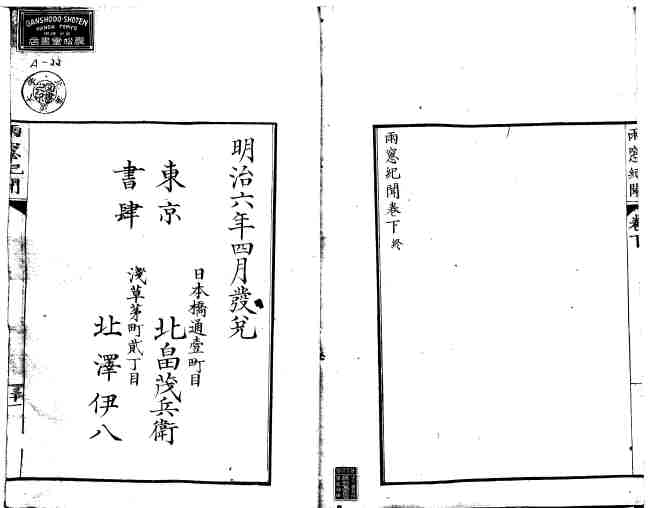 雨窓紀聞
卷下
雨窓紀聞卷下終
GANSHODO-SHOTEN
KANDA TOKYO
巖松堂書店
A-22
明治六年四月發兌
東京
書肆
日本橋通壹町目
北畠茂兵衛
淺草茅町貳丁目
北澤伊八
雨窓紀聞